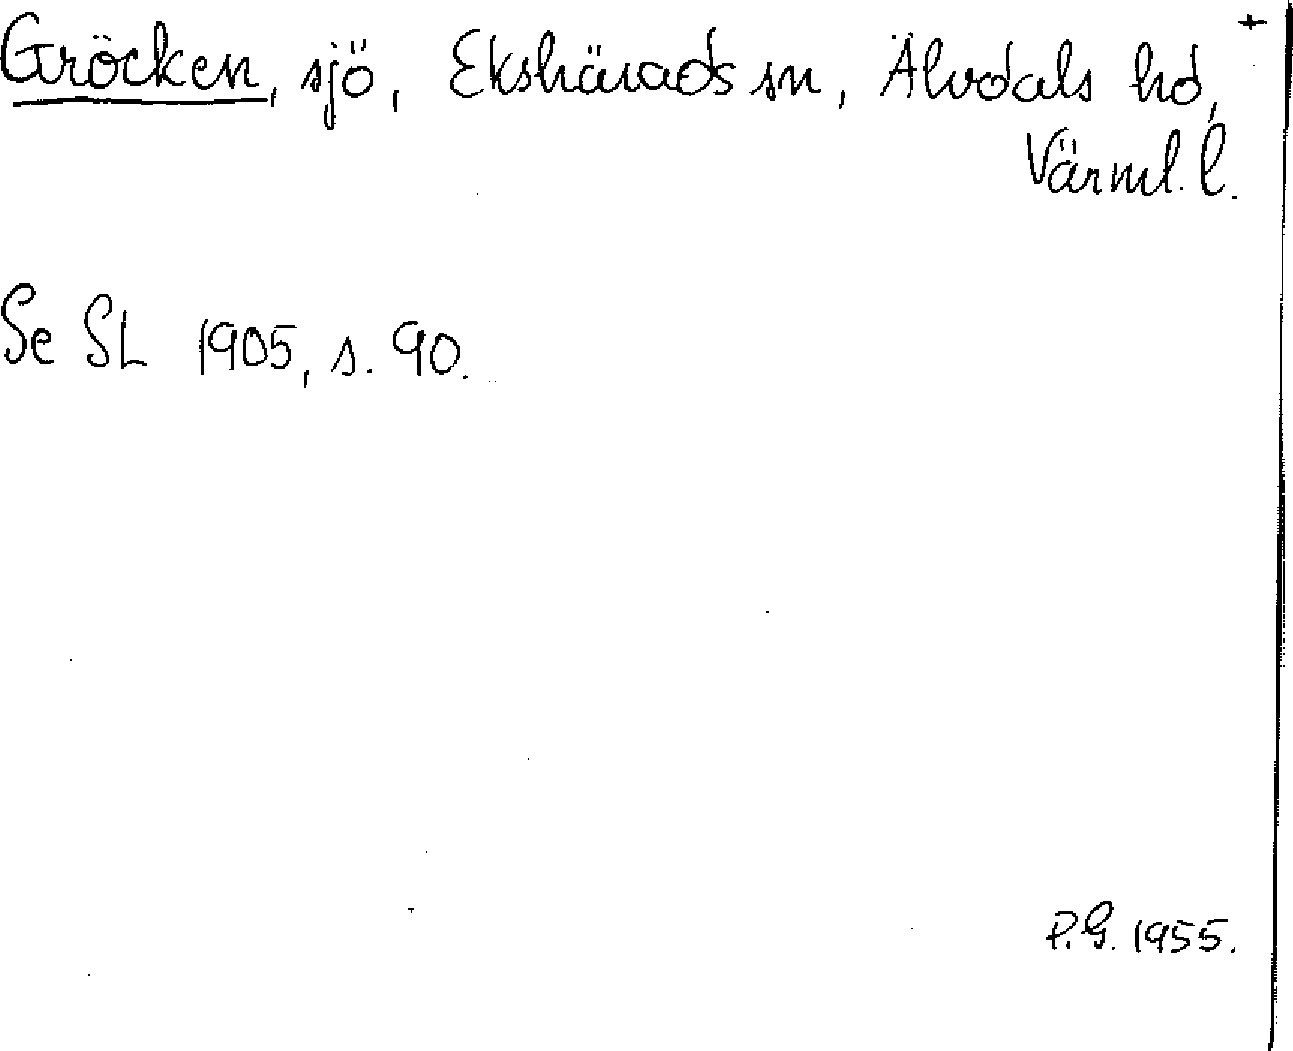 Gröcken, sjö, Ekshärads sn, Älvdals hd, +
Värml. l.
Se SL 1905, s. 90.
P.G. 1955.